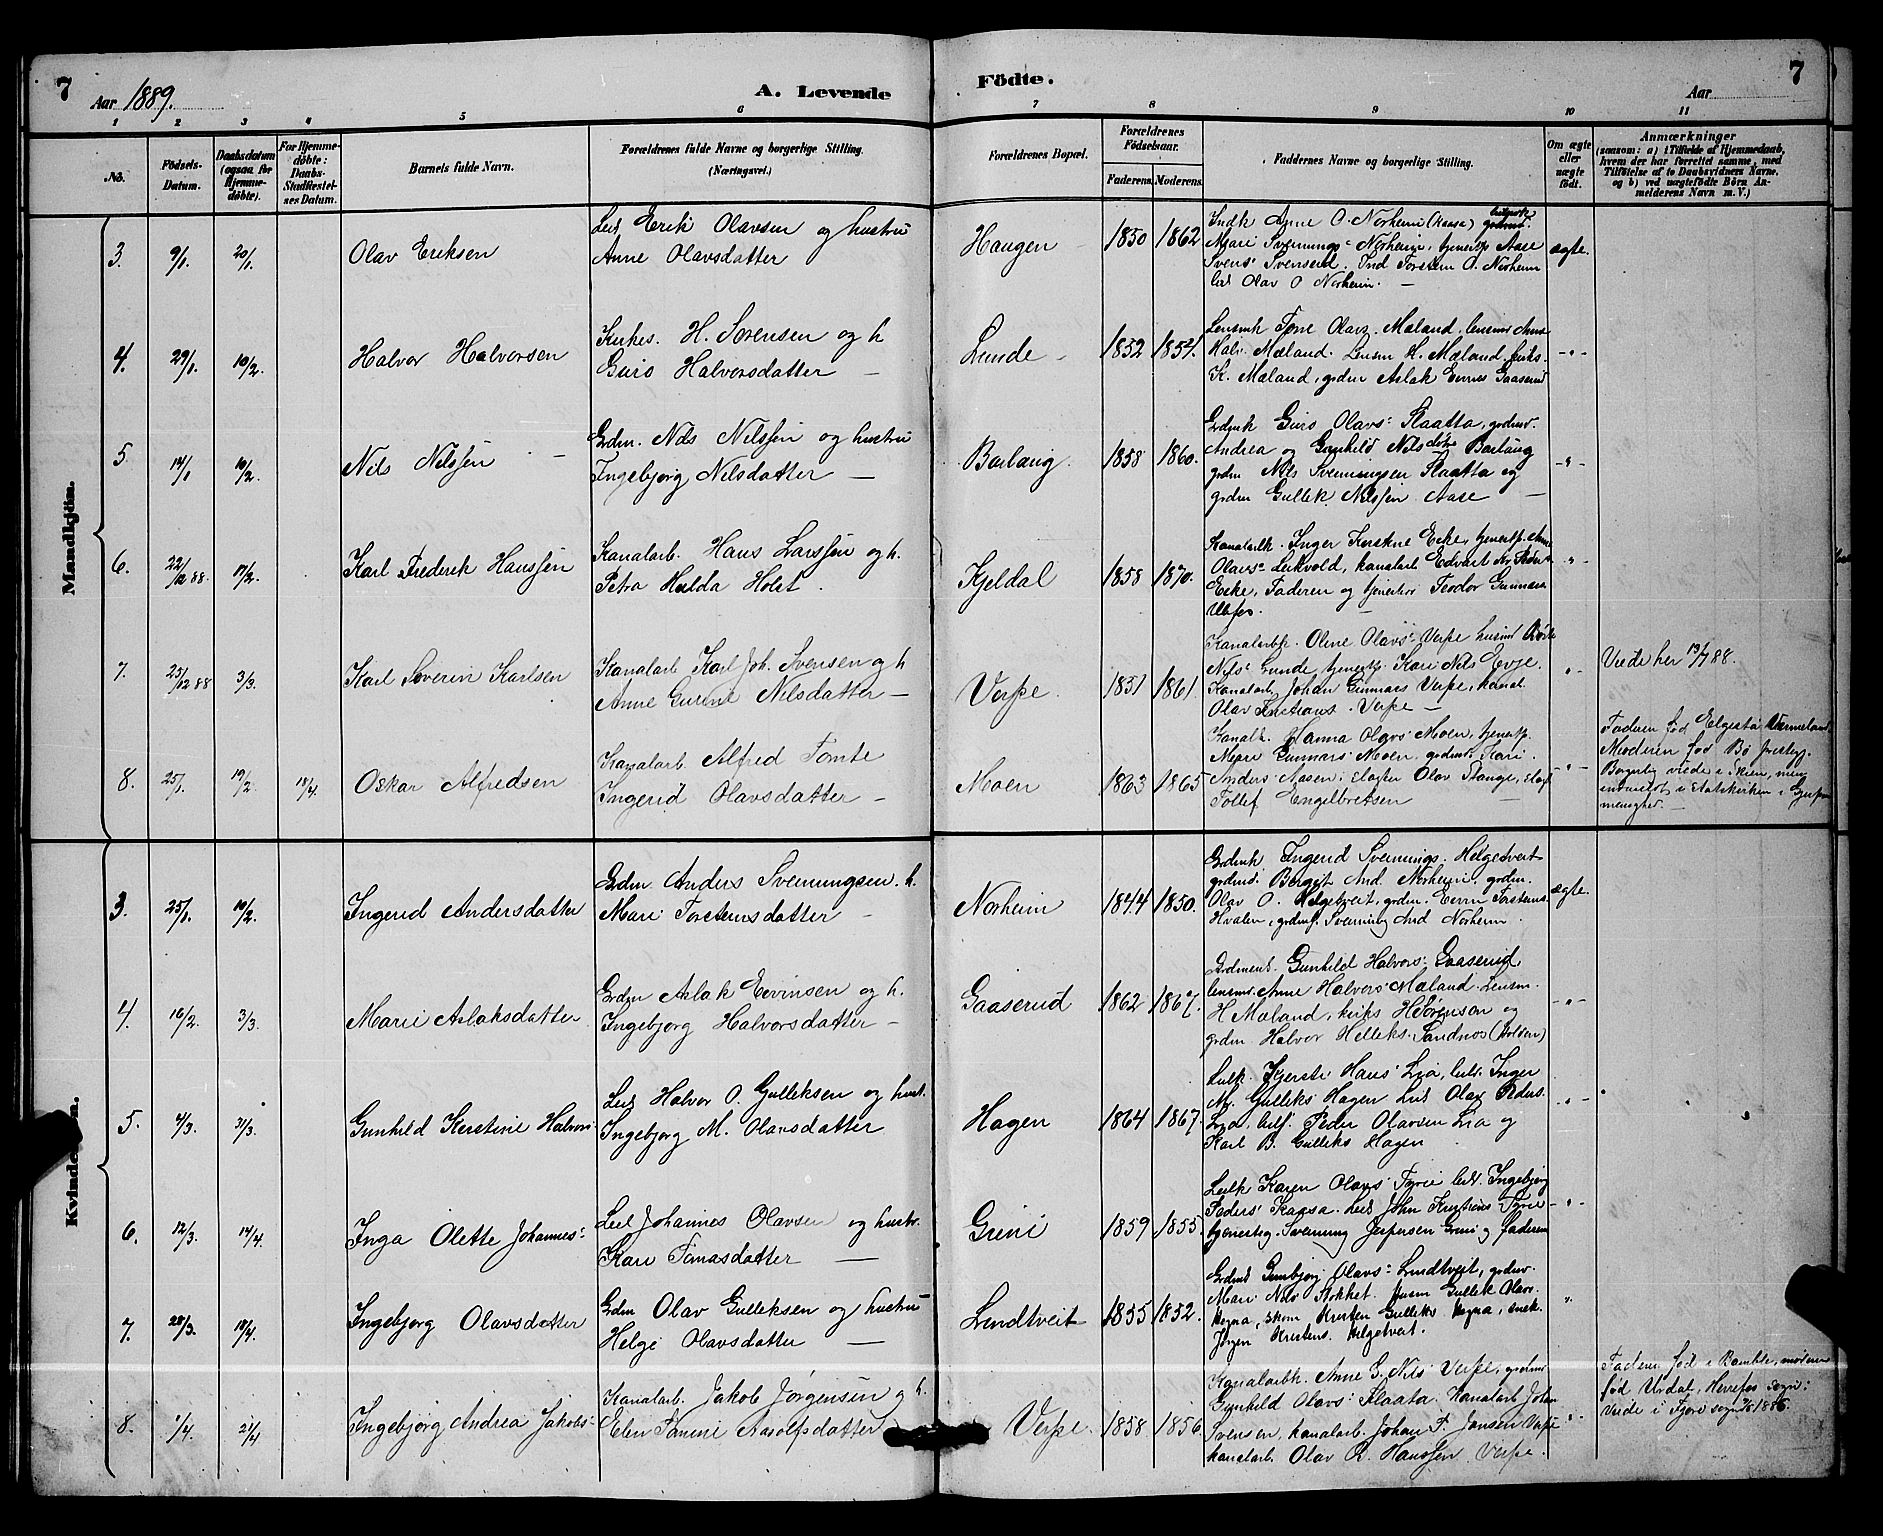 7
Aar 1889.
A. Levende
Födte.
Aar
7
1 2 3 4 5 6 7 8 9 10 11
No.
Födsels-
Datum.
Daabsdatum
(ogsaa for
Hjemme-
døbte).
For Hjemme-
døbte:
Daabs-
Stadfæstel-
ses Datum.
Barnets fulde Navn.
Forældrenes fulde Navne og borgerlige Stilling.
(Næringsvei.)
Forældrenes Bopæl.
Forældrenes
Födselsaar.
Faderens. Moderens.
Faddernes Navne og borgerlige Stilling.
Om ægte
eller
uægte
født.
Anmærkninger
(saasom: a) i Tilfælde af Hjemmedaab,
hvem der har forrettet samme, med
Tilføielse af to Daabsvidners Navne,
og b) ved uægtefödte Börn An-
melderens Navn m. V.)
Mandkjön.
3. 9/1. 20/1. Olav Eriksen
Leil Erik Olavsen og hustru
Anne Olavsdatter
Haugen 1850 1862
Indk Anne O. Norheim (Kaasa)
Mari Svennings- Norheim, tjenestp Aase
Svens' Svenserud. Ind Torstein O. Norheim
leil Olav O Norheim. —
ægte.
4. 29/1. 10/2. Halvor Halvorsen
Kirkes. H. Sørensen og h
Guro Halvorsdatter —
Lunde 1852 1854.
Lensmk Tone Olavs. Mæland, lensmd Anne
Halv. Mæland. Lensm H. Mæland, kirks-
K. Mæland, grdm Aslak Eevins Gaaserud
-"-
5. 14/1 10/2. Nils Nilssen
Grdm. Nils Nilssen og hustru
Ingebjørg Nilsdatter —
Barlaug. 1858 1860.
Grdmk Guro Olavs' Slaatta, grdmd.
Andrea og Gunhild Nilsdøtre Barlaug
grdm Nils Svenningsen Slaatta og
grdm Gullek Nilssen Aase —
-"-
6. 22/12 88. 17/2. Karl Frederik Hanssen
Kanalarb. Hans Larssen og h.
Petra Hulda Holst.
Kjeldal 1858 1870.
Kanalarbk. Inger Kirstine Eeke, tjenestp. Anne
Olavs- Leikvold, kanalarb Edvart
Eeke, Faderen og tjenestkar Teodor Gunnars
Ulefos.
-"-
7. 25/12 88 3/3. Karl Severin Karlsen
Kanalarb Karl Joh. Svensen og h
Anne Gurine Nilsdatter —
Verpe. 1851 1861.
Kanalarbk. Oline Olavs' Verpe husmd
Nils' Lunde, tjenestp. Kari Nils Evje.
Kanalarb. Johan Gunnars Verpe, kanal.
Olav Kristians. Verpe —
"-
Viede her 13/7 88.
8. 25/1. 19/2. 18/4. Oskar Alfredsen
Kanalarb Alfred Tomte
Ingerid Olavsdatter —
Moen 1863 1865
Kanalk. Hanna Olavs' Moen, tjenestp.
Mari Gunnars' Moen, grdmd. Kari
Anders' Aasen, Olav Stange,
Tollef Engelbretsen —
-"-
Faderen fød Elgestå Værmeland.
Moderen fød Bø prestegj.
Borgerlig viede i Skien, men
indmeldt i Statskirken i Gjerpen
menighed. —
Kvindekjön.
3. 25/1. 10/2. Ingerid Andersdatter
Grdm Anders Svenningsen. h.
Mari Torsteinsdatter —
Norheim 1844 1850.
Grdmk Ingerid Svennings. Helgetveit
grdmd. Bergit And. Norheim, grdm.
Olav O. Helgetveit, grdm. Eevin Torsteins
Hvalen, grdmf. Svenning And Norheim.
ægte.
4. 16/2. 3/3. Marie Aslaksdatter
Grdm Aslak Eevinsen og h.
Ingebjørg Halvorsdatter —
Gaaserud 1862 1867.
Grdmend. Gunhild Halvors- Gaaserud,
lensmd. Anne Halvors' Mæland. Lensm.
H Mæland, kirks H Sørensen og
grdm Halvor Helleks. Sandnes (Holden)
-"-
5. 4/3. 31/3. Gunhild Kerstine Halvors:
Leil Halvor O. Gulleksen og hust.
Ingebjørg M. Olavsdatter
Hagen 1864 1867.
Leilk. Kjersti Hans' Lia, leild. Inger
M. Gulleks Hagen Leil Olav Peders.
Lia, leilf. Peder Olavsen Lia og
Karl B. Gulleks Hagen
-"-
6. 12/3. 14/4. Inga Olette Johannes:
Leil Johannes Olavsen og hustr.
Kari Tomasdatter —
Greni 1859 1855.
Leilk Karen Olavs' Tyrie leild. Ingebjørg
Peders' Kaasa. Leil John Kristians Tyrie
tjenesteg. Svenning Jespersen Greni og faderen
-"-
7. 28/3. 18/4. Ingebjørg Olavsdatter
Grdm Olav Gulleksen og hustru
Helge Olavsdatter —
Lindtveit 1855 1852.
Grdmd Gunbjørg Olavs- Lindtveit, grdmd.
Mari Nils Stokket. Husm Gullek Olavs.
skom Kresten Gulleks snek.
Jörgen Kristens. Helgetveit.
"
8. 1/4. 21/4 Ingebjørg Andrea Jakobs-
Kanalarb. Jakob Jørgensen og h.
Elen Tomine Aasolfsdatter
Verpe. 1858 1856.
Kanalarbk. Anne G. Nils' Verpe, grdmd
Gunhild Olavs' Slaata. Kanalarb Johan
Svensen, kanalarb. Johan F. Jansen Verpe
kanalarb. Olav L. Hanssen Verpe.
"-
Faderen fød i Bamble, moderen
fød Urdal, Herrefos sogn:
Viede i Fjære sogn 1886.